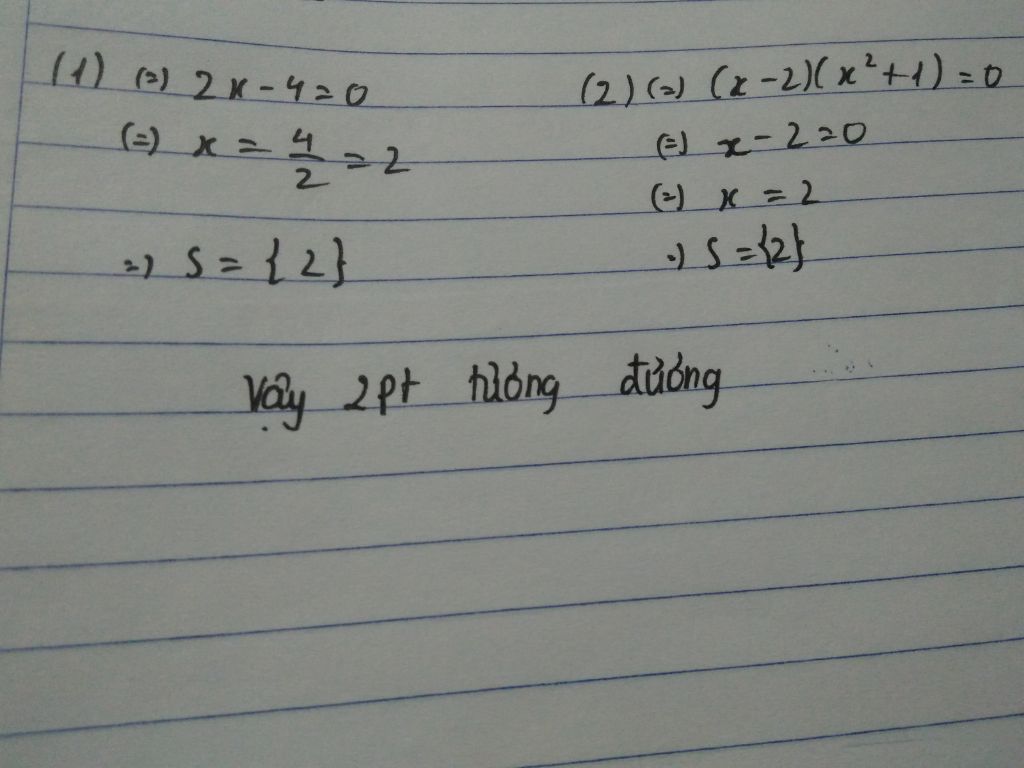 (1) (=) 2x - 4 = 0
(=) x = 4/2 = 2
=) S = {2}
(2) (=) (x - 2)(x² + 1) = 0
(=) x - 2 = 0
(=) x = 2
=) S = {2}
Vậy 2pt tương đương